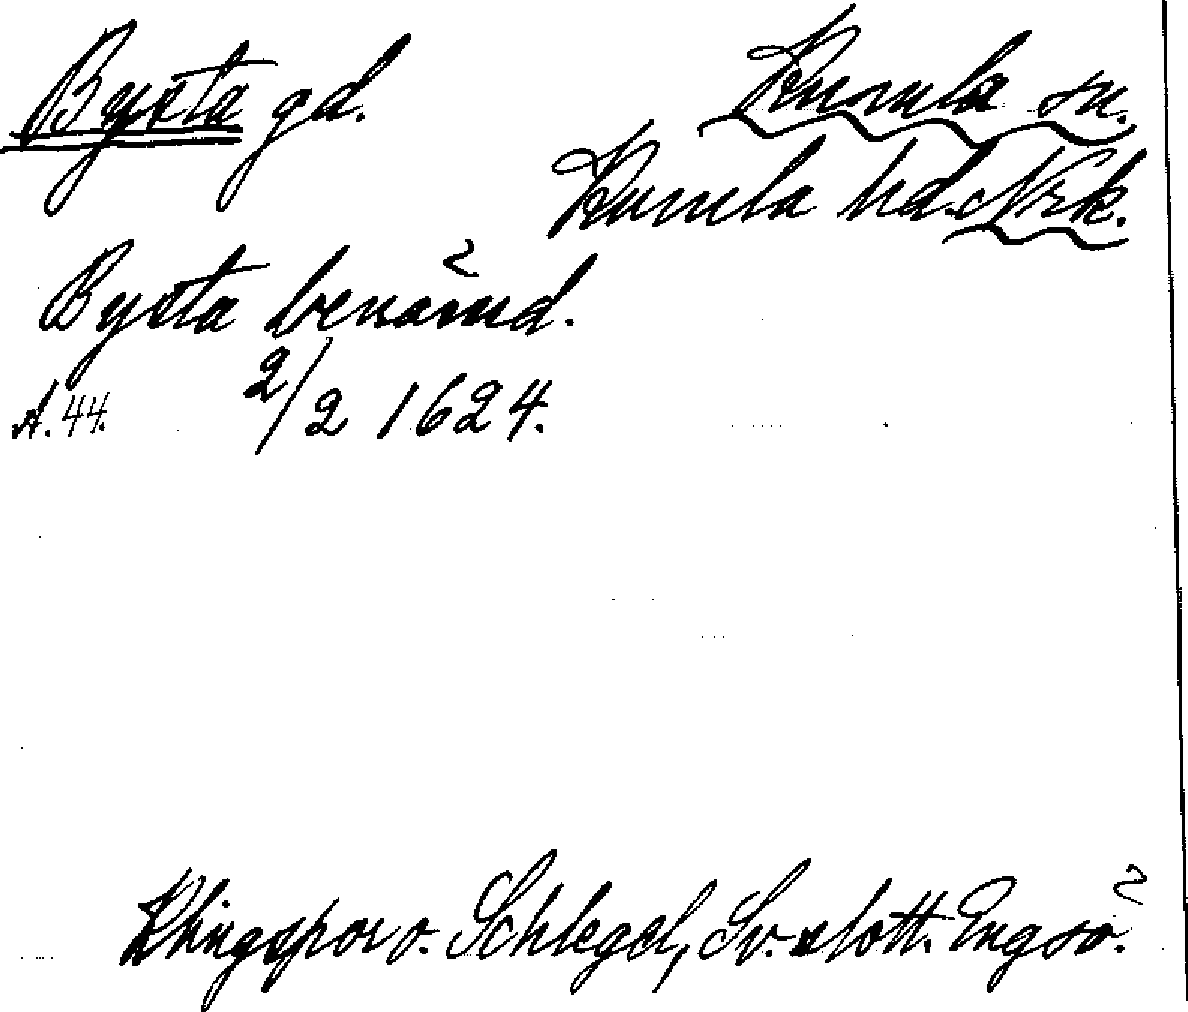 Bysta gd. Kumla sn.
Kumla hd. Nrk.
Bysta benämd.
A. 44. 2/2 1624.
Klingspor o. Schlegel, Sv. slott. Engsö.